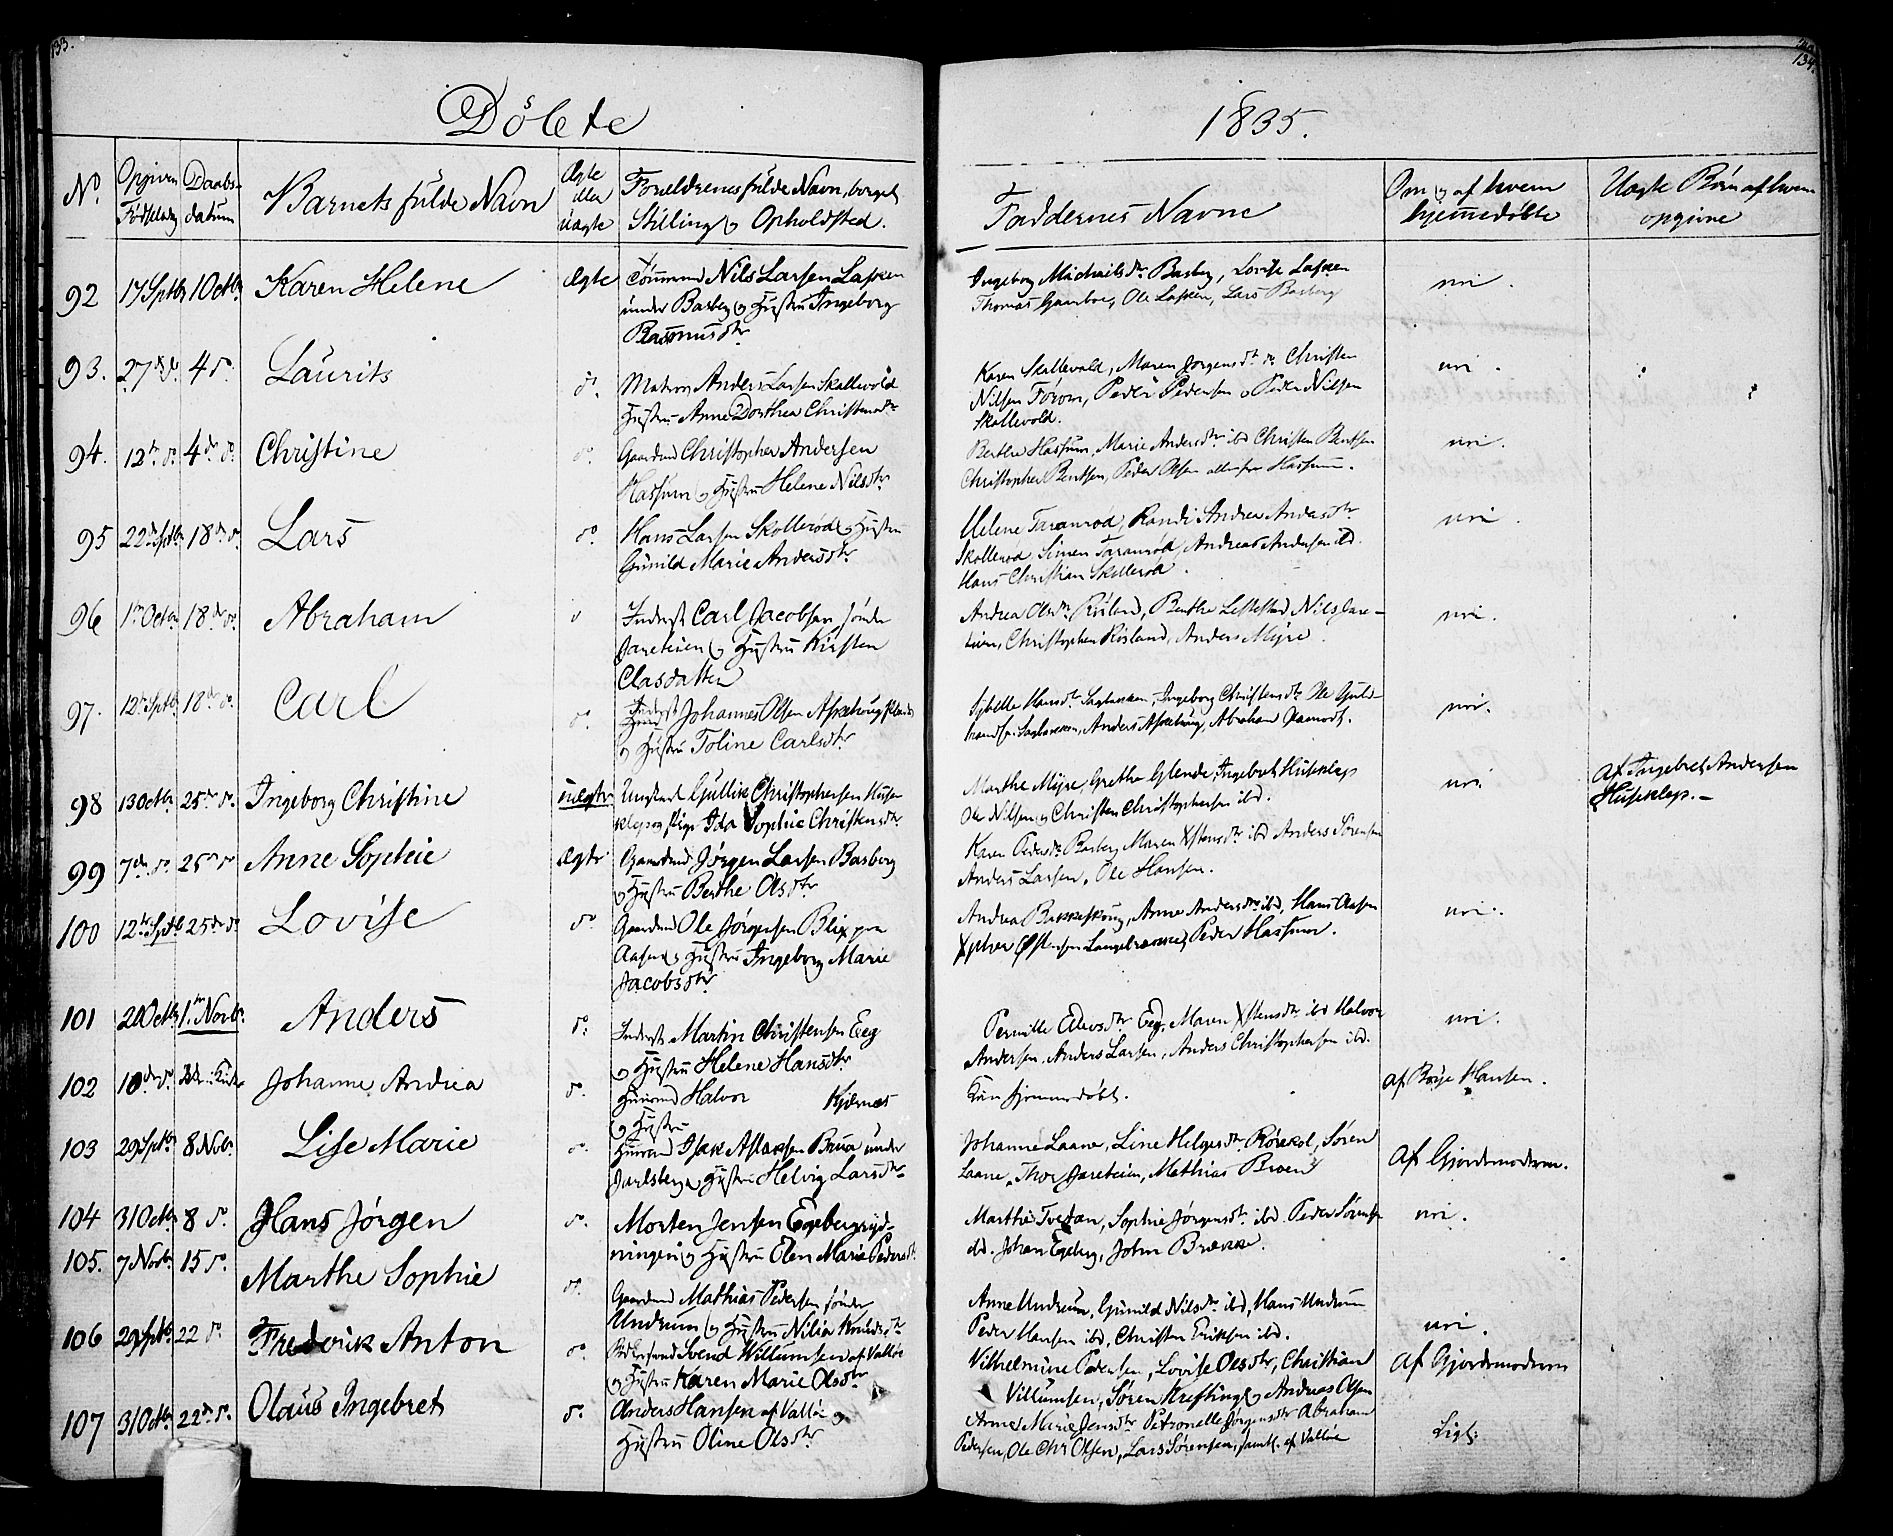 133.
134.
Døbte
1835.
No
Opgiven Fødselsdag
Daabs-datum
Barnets fulde Navn
Ægte eller Uægte
Forældrenes fulde Navn, borgel.
Stilling og Opholdsted.
Faddernes Navne
Om og af hvem hjemmedøbte
Uægte Børn af hvem opgivne
92 17 Septbr 1 Octbr Karen Helene Ægte Nils Larsen Lasken
under Basberg og Hustru Ingeborg
Rasmusdtr
Ingeborg Michailsdtr Basberg, Lovise Lasken
Thomas Gamboe, Ole Lasken, Lars Basberg
nei.
93. 27 4 do Laurits do. Matros Anders Larsen Skallevold
Hustru Anne Dorthea Christensdtr
Karen Skallevold, Maren Jørgensdtr Christen
Nilsen Førom, Peder Pedersen o Peder Nilsen
Skallevold.
nei.
94. 12 do. 4de do. Christine do. Gaardmd Christopher Andersen
Hassum og Hustru Helene Nilsdtr
Berthe Hassum, Marie Andersdtr ibd Christen Bentsen
Christopher Bentsen, Peder Olsen alle fra Hassum.
nei.
95 22 Septbr 18de do. Lars do. Hans Larsen Skollerød og Hustru
Gunild Marie Andersdtr
Helene Taranrød, Randi Andrea Andersdtr
Skollerød, Simen Taranrød, Andreas Andersen ibd.
Hans Christian Skollerød.
nei.
96 1 Octbr 18de do. Abraham d Inderst Carl Jacobsen søndre
Jareteien og Hustru Kirsten
Clasdatter
Andrea Olsdtr Røisland, Berthe Nils Jare-
teien, Christopher Røisland, Anders Myre.
nei.
97. 12 Septbr 18de do. Carl do. Inderst Johannes Olsen
og Hustru Toline Carlsdtr
Sybille Hansdtr Ingeborg Christensdtr Ole Guld-
Anders Abraham
nei.
98 13 Octbr 25de do. Ingeborg Christine uægte Ungkarl Gullik Christophersen Huse-
klep og Pige Ida Sophie Christensdtr
Marthe Myre, Grethe Glende, Ingebret Huseklep
Ole Nilsen og Christen Christophersen ibd.
nei.
Af Ingebret Andersen
Huseklep.-
99 7de do. 25de do Anne Sophie Ægte Gaardmd Jørgen Larsen Basberg
og Hustru Berthe Olsdtr
Karen Pedersdtr Basberg Maren Xstensdtr ibd Anders Sørensen
Anders Larsen, Ole Hansen.
100 12 Septb 25de do Lovise do. Gaardmd Ole Jørgensen Blix paa
Aasen og Hustru Ingeborg Marie
Jacobsdtr
Andrea Anne Andersdtr ibd, Hans Olsen
Xpher Peder Hassum.
nei.
101 20 Octbr 1te Novbr. Anders do. Inderst Martin Christensen Eeg
og Hustru Helene Hansdtr
Pernille Eeg, Maren Xstensdtr ibd Halvor
Andersen, Anders Larsen, Anders Christophersen ibd.
nei.
102 10de do. Johanne Andrea do. Huusmd Halvor Kjærnæs
og Hustru
Kun hjemmedøbt.
af Børge Hansen.
103 29 Septbr 8 Novbr. Lise Marie Huusmd Isak Aslaksen Brua under
Jarlsberg og Hustru Helvig Larsdtr
Johanne Laane, Line Helgesdtr Rørekol, Søren
Laane, Thor Jareteien, Mathias Broen
af Gjordemoderen.
104 31 Octbr 8 do. Hans Jørgen do. Morten Jensen Egebergryd-
ningen og Hustru Elen Marie Pedersdtr
Marthe Tvetan, Sophie Jørgensdtr ibd. Peder Sørensen
ibd. Johan Egeberg, John Brække.
nei.
105. 7 Novbr. 15 do. Marthe Sophie do. Gaardmd Mathias Pedersen søndre
Undrum og Hustru Nilia Knudsdtr
Anne Undrum, Gunild Nilsdtr ibd, Hans Undrum
Peder Hansen ibd, Christen Eriksen ibd.
nei.
106 29 Septbr 22 do Frederik Anton do. Svend Willumsen af Valløe
og Hustru Karen Marie Olsdtr
Vilhelmine Pedersen, Lovise Olsdtr, Christian
Villumsen, Søren Kreftting og Andreas Olsen
af Gjordemoderen
107 31 Octbr 22de do. Olaus Ingebret do. Anders Hansen af Valløe og
Hustru Oline Olsdtr
Anne Marie Jensdtr Petronelle Jørgensdtr Abraham
Pedersen, Ole Chr Olsen, Lars Sørensen, samtl. af Valløe
Lige.